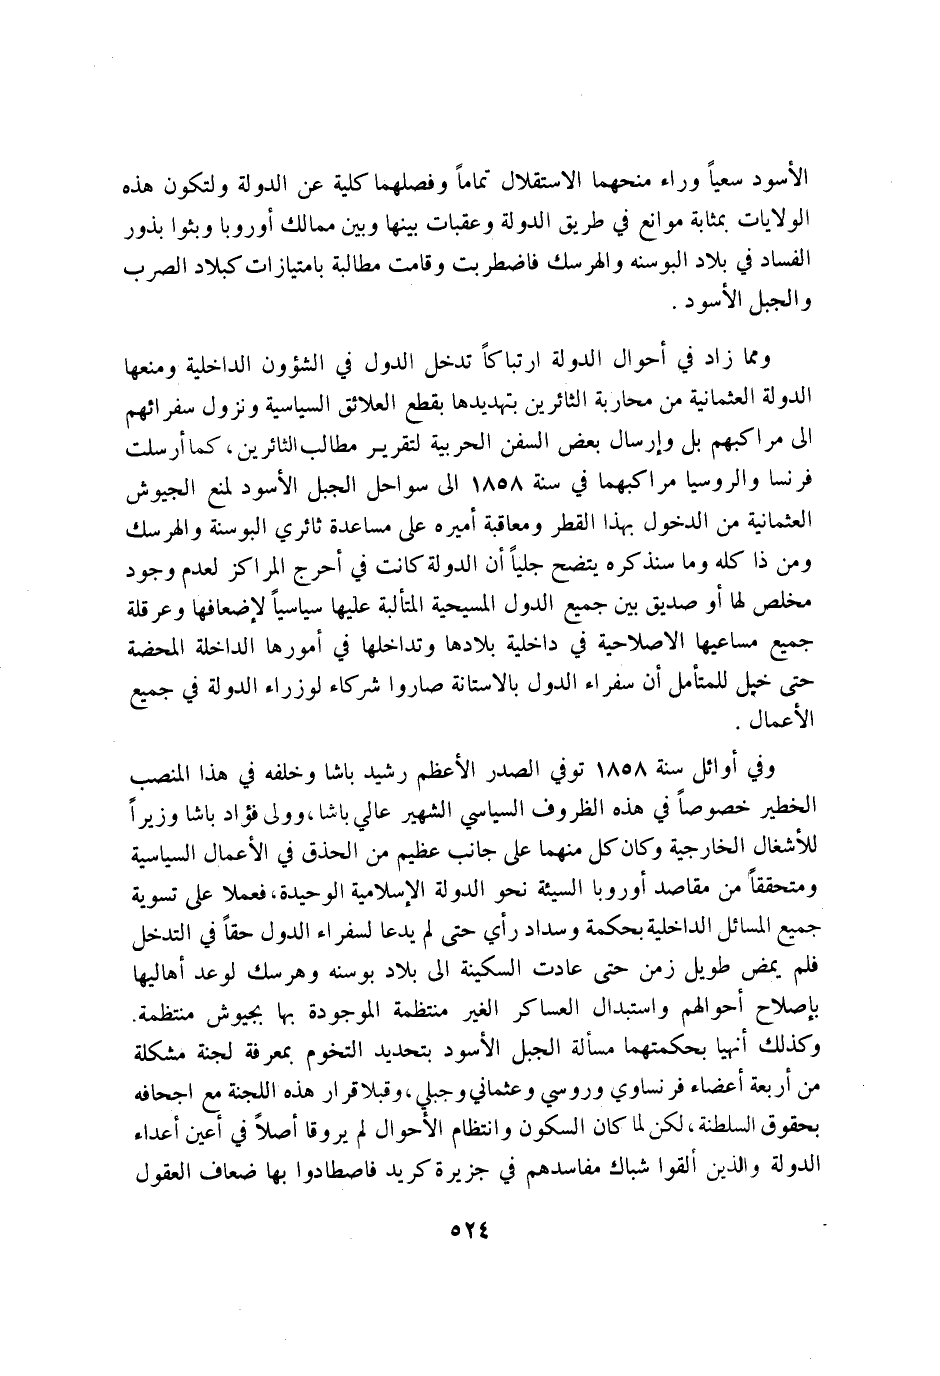 الأسود سعياً وراء منحهما الاستقلال تماماً وفصلهما كلية عن الدولة ولتكون هذه
الولايات بمثابة موانع في طريق الدولة وعقبات بينها وبين ممالك أوروبا وبثوا بذور
الفساد في بلاد البوسنه والهرسك فاضطربت وقامت مطالبة بامتيازات كبلاد الصرب
والجبل الأسود .
ومما زاد في أحوال الدولة ارتباكاً تدخل الدول في الشؤون الداخلية ومنعها
الدولة العثمانية من محاربة الثائرين بتهديدها بقطع العلائق السياسية ونزول سفرائهم
الى مراكبهم بل وإرسال بعض السفن الحربية لتقرير مطالب الثائرين، كما أرسلت
فرنسا والروسيا مراكبهما في سنة ١٨٥٨ الى سواحل الجبل الأسود لمنع الجيوش
العثمانية من الدخول بهذا القطر ومعاقبة أميره على مساعدة ثائري البوسنة والهرسك
ومن ذا كله وما سنذكره يتضح جلياً أن الدولة كانت في أحرج المراكز لعدم وجود
مخلص لها أو صديق بين جميع الدول المسيحية المتألبة عليها سياسياً لإضعافها وعرقلة
جميع مساعيها الاصلاحية في داخلية بلادها وتداخلها في أمورها الداخلة المحضة
حتى خيل للمتأمل أن سفراء الدول بالاستانة صاروا شركاء لوزراء الدولة في جميع
الأعمال .
وفي أوائل سنة ١٨٥٨ توفي الصدر الأعظم رشيد باشا وخلفه في هذا المنصب
الخطير خصوصاً في هذه الظروف السياسي الشهير عالي باشا، وولى فؤاد باشا وزيراً
للأشغال الخارجية وكان كل منهما على جانب عظيم من الحذق في الأعمال السياسية
ومتحققاً من مقاصد أوروبا السيئة نحو الدولة الإسلامية الوحيدة، فعملا على تسوية
جميع المسائل الداخلية بحكمة وسداد رأي حتى لم يدعا لسفراء الدول حقاً في التدخل
فلم يمض طويل زمن حتى عادت السكينة الى بلاد بوسنه وهرسك لوعد أهاليها
بإصلاح أحوالهم واستبدال العساكر الغير منتظمة الموجودة بها بجيوش منتظمة.
وكذلك أنهيا بحكمتهما مسألة الجبل الأسود بتحديد التخوم بمعرفة لجنة مشكلة
من أربعة أعضاء فرنساوي وروسي وعثماني وجبلي، وقبلا قرار هذه اللجنة مع اجحافه
بحقوق السلطنة، لكن لما كان السكون وانتظام الأحوال لم يروقا أصلاً في أعين أعداء
الدولة والذين ألقوا شباك مفاسدهم في جزيرة كريد فاصطادوا بها ضعاف العقول
٥٢٤